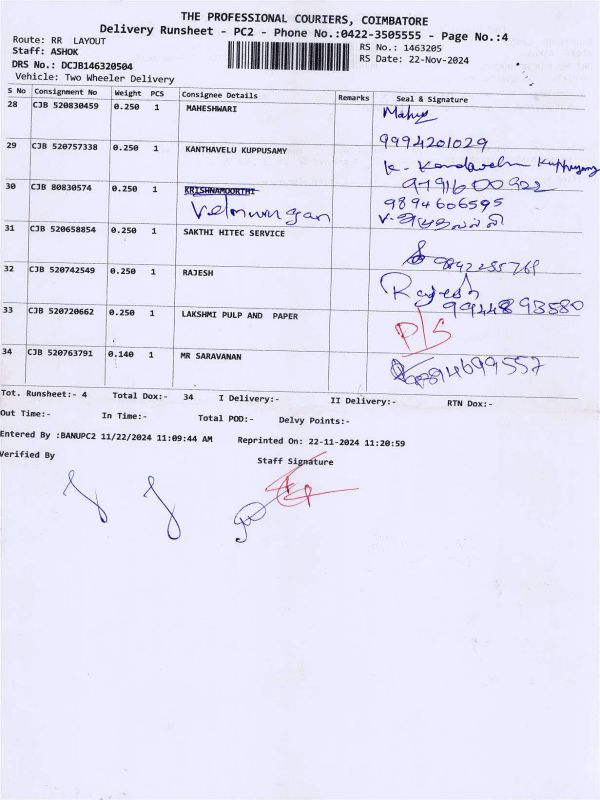 THE PROFESSIONAL COURIERS, COIMBATORE
Delivery Runsheet - PC2 - Phone No.:0422-3505555 - Page No.:4
Route: RR LAYOUT
RS No.: 1463205
Staff: ASHOK
RS Date: 22-Nov-2024
DRS No.: DCJB146320504
Vehicle: Two Wheeler Delivery
S No Consignment No Weight PCS Consignee Details Remarks Seal & Signature
28 CJB 520830459 0.250 1 MAHESHWARI
9994201029
29 CJB 520757338 0.250 1 KANTHAVELU KUPPUSAMY
K. Kandavelu Kuppusamy
9791600922
30 CJB 80830574 0.250 1 KRISHNAMOORTHI
Velmurugan
9894606595
31 CJB 520658854 0.250 1 SAKTHI HITEC SERVICE
9842255769
32 CJB 520742549 0.250 1 RAJESH
Rajesh
9944893580
33 CJB 520720662 0.250 1 LAKSHMI PULP AND PAPER
P/S
34 CJB 520763791 0.140 1 MR SARAVANAN
Tot. Runsheet:- 4 Total Dox:- 34 I Delivery:- II Delivery:- RTN Dox:-
Out Time:- In Time:- Total POD:- Delvy Points:-
Entered By :BANUPC2 11/22/2024 11:09:44 AM Reprinted On: 22-11-2024 11:20:59
Verified By
Staff Signature